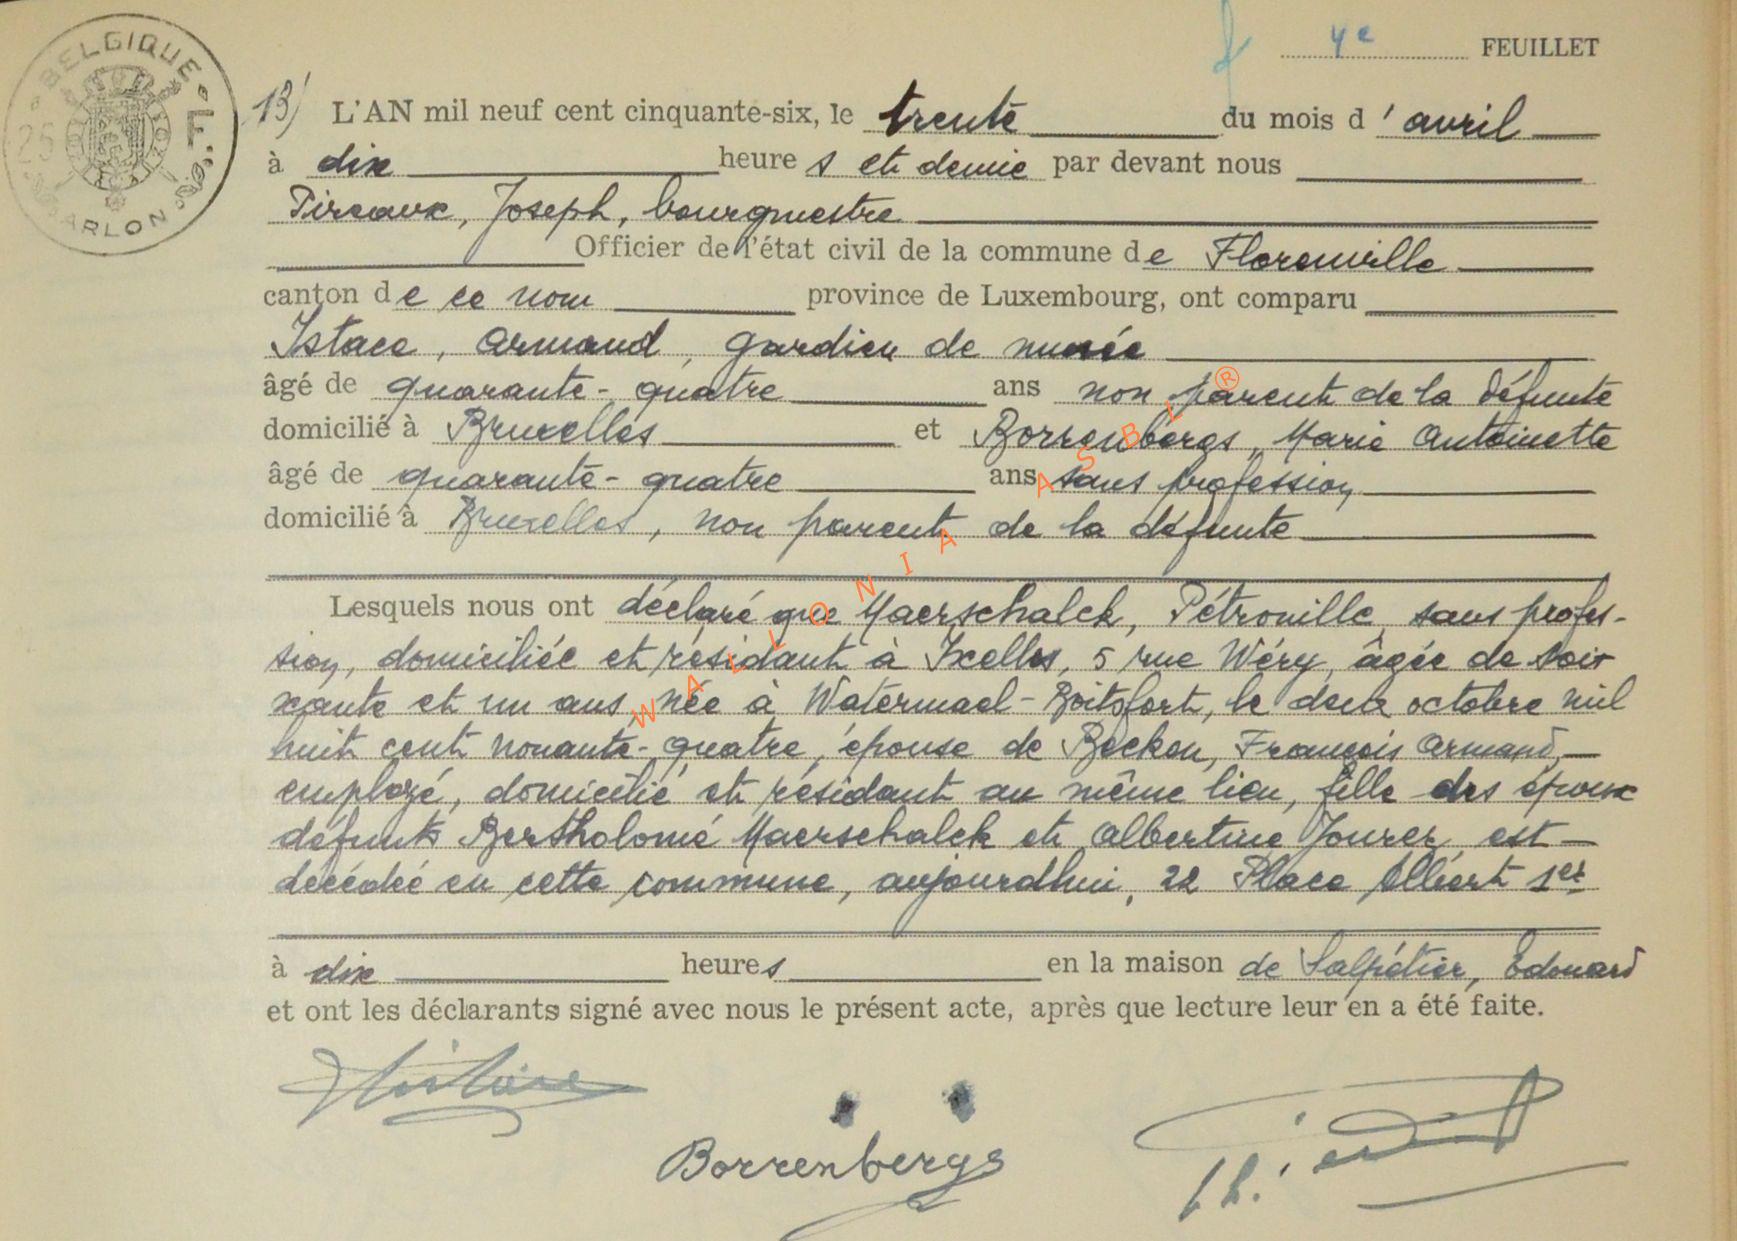 4e FEUILLET
BELGIQUE
25 F.
ARLON
13) L'AN mil neuf cent cinquante-six, le trente du mois d'avril
à dix heures et demie par devant nous
Pireaux, Joseph, bourgmestre
Officier de l'état civil de la commune de Florenville
canton de ce nom province de Luxembourg, ont comparu
Istace, Armand, gardien de musée
âgé de quarante-quatre ans non parent de la défunte
domicilié à Bruxelles et Borrenbergs, Marie Antoinette
âgé de quarante-quatre ans sans profession,
domicilié à Bruxelles, non parent de la défunte
Lesquels nous ont déclaré que Maerschalck, Pétronille, sans profes-
sion, domiciliée et résidant à Ixelles, 5 rue Wéry, âgée de soi
xante et un ans, née à Watermael-Boitsfort, le deux octobre mil
huit cent nonante-quatre, épouse de Becken, François Armand,
employé, domicilié et résidant au même lieu, fille des époux
défunts Bertholomé Maerschalck et Albertine Jourez est
décédée en cette commune, aujourdhui, 22 Place Albert 1er
à dix heures en la maison de Salpétier, Edouard
et ont les déclarants signé avec nous le présent acte, après que lecture leur en a été faite.
Borrenbergs
WALLONIA ASBL ®